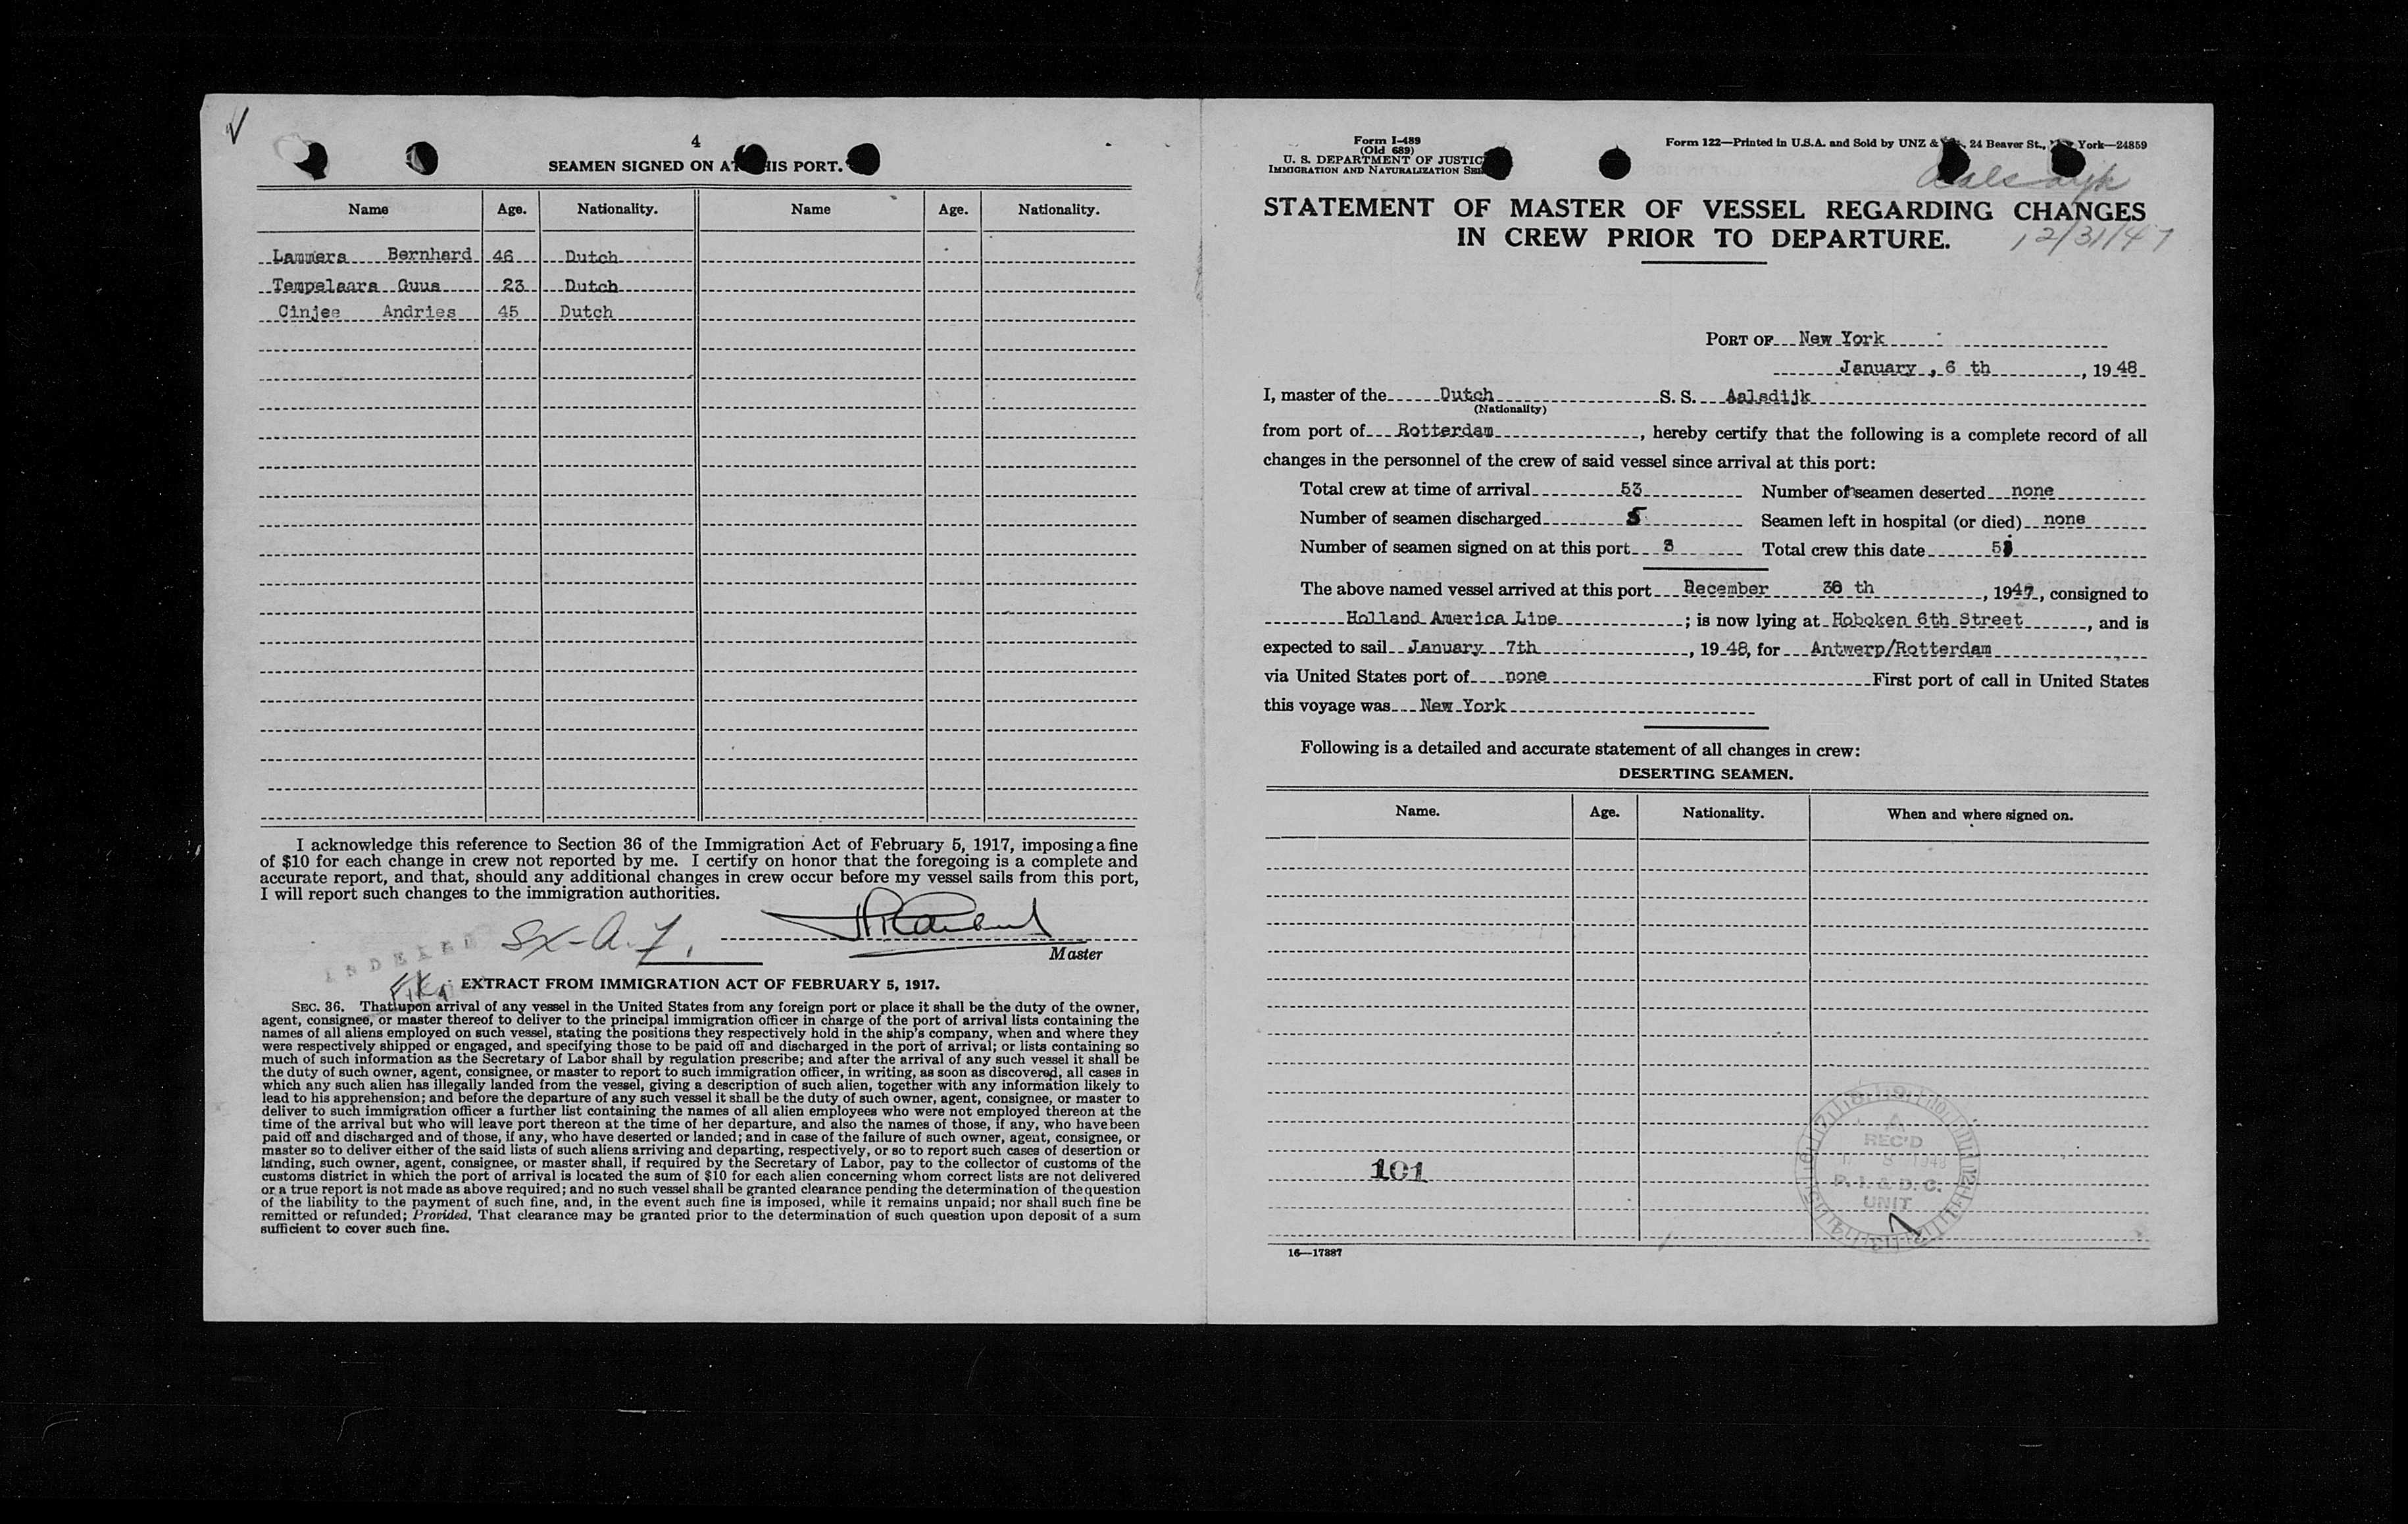 4
SEAMEN SIGNED ON AT THIS PORT.
Name Age. Nationality. Name Age. Nationality.
Lammers Bernhard 46 Dutch
Tempelaars Guus 23 Dutch
Cinjee Andries 45 Dutch
I acknowledge this reference to Section 36 of the Immigration Act of February 5, 1917, imposing a fine
of $10 for each change in crew not reported by me. I certify on honor that the foregoing is a complete and
accurate report, and that, should any additional changes in crew occur before my vessel sails from this port,
I will report such changes to the immigration authorities.
Master
INDEXED
EXTRACT FROM IMMIGRATION ACT OF FEBRUARY 5, 1917.
SEC. 36. That upon arrival of any vessel in the United States from any foreign port or place it shall be the duty of the owner,
agent, consignee, or master thereof to deliver to the principal immigration officer in charge of the port of arrival lists containing the
names of all aliens employed on such vessel, stating the positions they respectively hold in the ship's company, when and where they
were respectively shipped or engaged, and specifying those to be paid off and discharged in the port of arrival; or lists containing so
much of such information as the Secretary of Labor shall by regulation prescribe; and after the arrival of any such vessel it shall be
the duty of such owner, agent, consignee, or master to report to such immigration officer, in writing, as soon as discovered, all cases in
which any such alien has illegally landed from the vessel, giving a description of such alien, together with any information likely to
lead to his apprehension; and before the departure of any such vessel it shall be the duty of such owner, agent, consignee, or master to
deliver to such immigration officer a further list containing the names of all alien employees who were not employed thereon at the
time of the arrival but who will leave port thereon at the time of her departure, and also the names of those, if any, who have been
paid off and discharged and of those, if any, who have deserted or landed; and in case of the failure of such owner, agent, consignee, or
master so to deliver either of the said lists of such aliens arriving and departing, respectively, or so to report such cases of desertion or
landing, such owner, agent, consignee, or master shall, if required by the Secretary of Labor, pay to the collector of customs of the
customs district in which the port of arrival is located the sum of $10 for each alien concerning whom correct lists are not delivered
or a true report is not made as above required; and no such vessel shall be granted clearance pending the determination of the question
of the liability to the payment of such fine, and, in the event such fine is imposed, while it remains unpaid; nor shall such fine be
remitted or refunded; Provided, That clearance may be granted prior to the determination of such question upon deposit of a sum
sufficient to cover such fine.
Form I-489
(Old 689)
U. S. DEPARTMENT OF JUSTICE
IMMIGRATION AND NATURALIZATION
Form 122—Printed in U.S.A. and Sold by UNZ & 24 Beaver St., York—24859
Aalsdijk
STATEMENT OF MASTER OF VESSEL REGARDING CHANGES
IN CREW PRIOR TO DEPARTURE.
12/31/47
PORT OF New York
January , 6 th , 19 48
I, master of the Dutch S. S. Aalsdijk
(Nationality)
from port of Rotterdam , hereby certify that the following is a complete record of all
changes in the personnel of the crew of said vessel since arrival at this port:
Total crew at time of arrival 53 Number of seamen deserted none
Number of seamen discharged 5 Seamen left in hospital (or died) none
Number of seamen signed on at this port 3 Total crew this date
The above named vessel arrived at this port December 30 th , 1947 , consigned to
Holland America Line ; is now lying at Hoboken 6th Street , and is
expected to sail January 7th , 19 48, for Antwerp/Rotterdam
via United States port of none First port of call in United States
this voyage was New York
Following is a detailed and accurate statement of all changes in crew:
DESERTING SEAMEN.
Name. Age. Nationality. When and where signed on.
101
REC'D
UNIT
16—17887